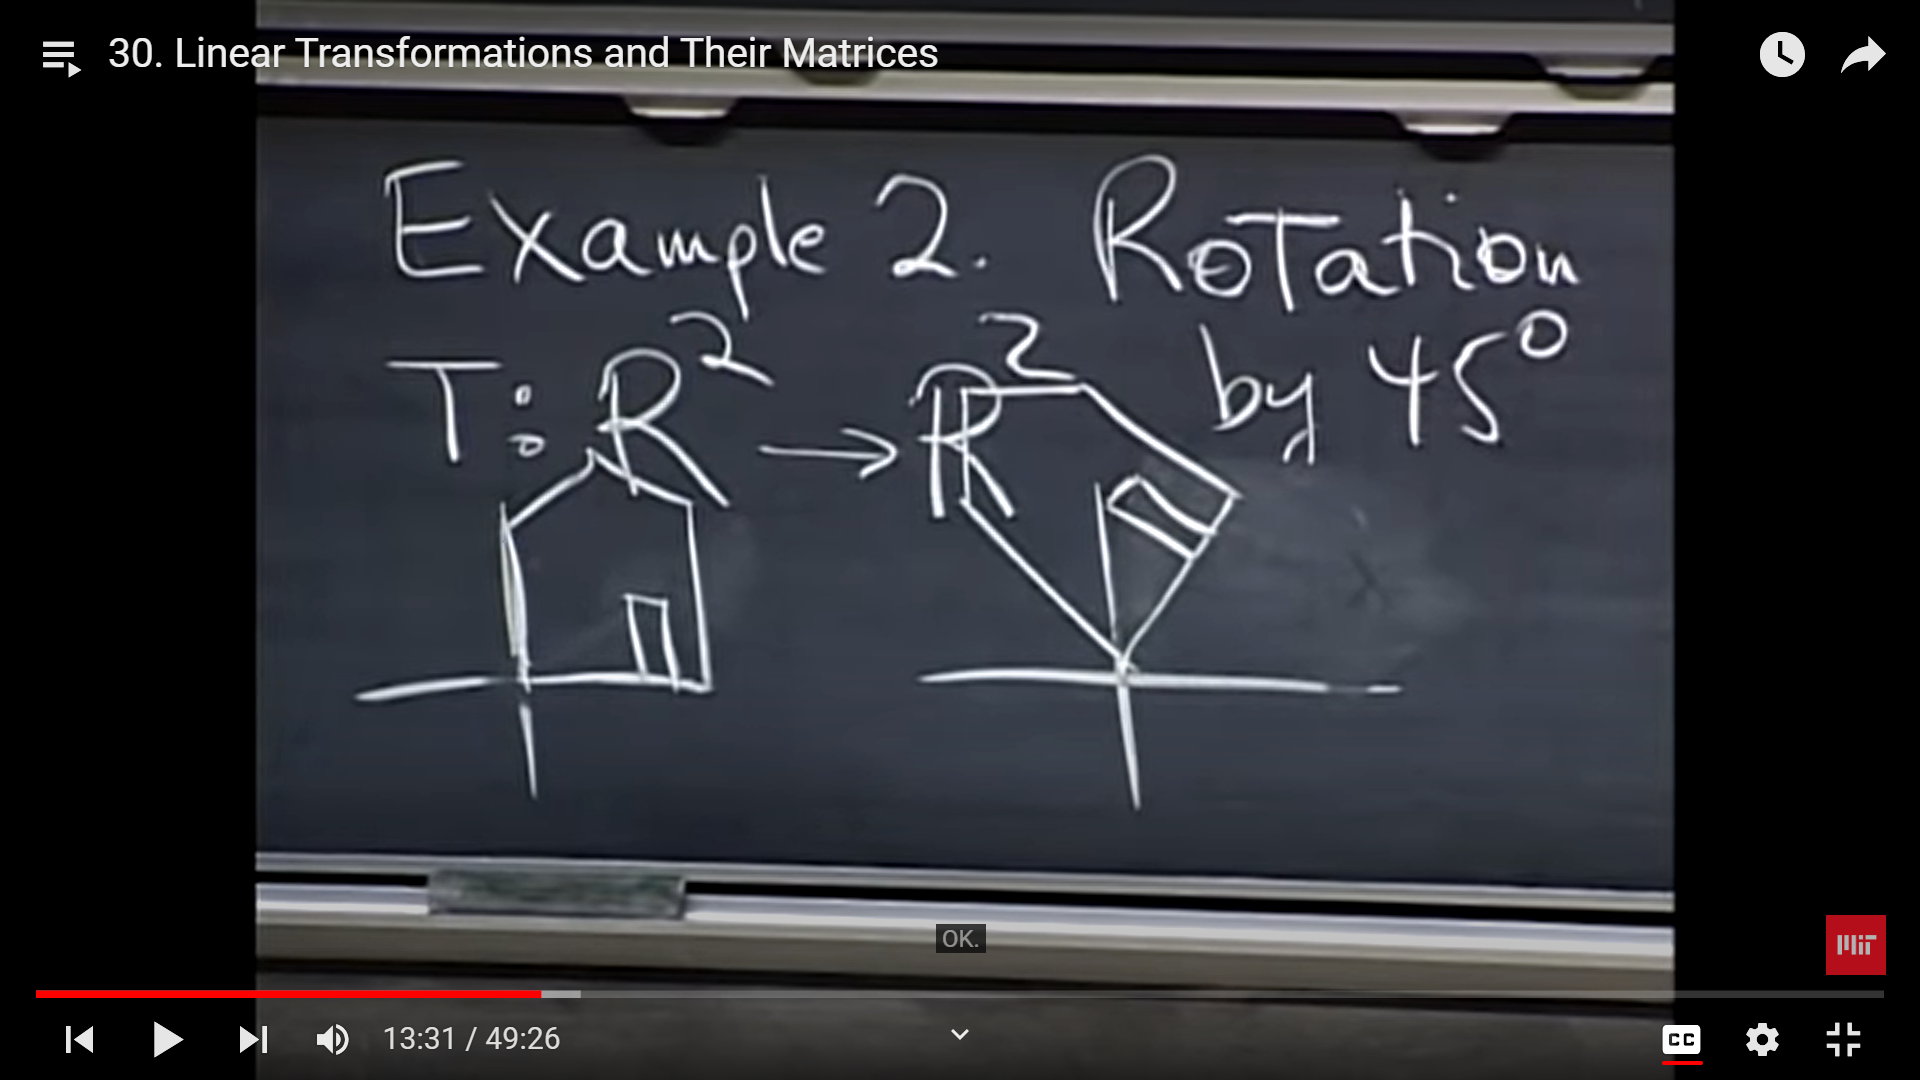 30. Linear Transformations and Their Matrices
Example 2. Rotation
by 45°
T: R² → R²
OK.
MIT
13:31 / 49:26
CC